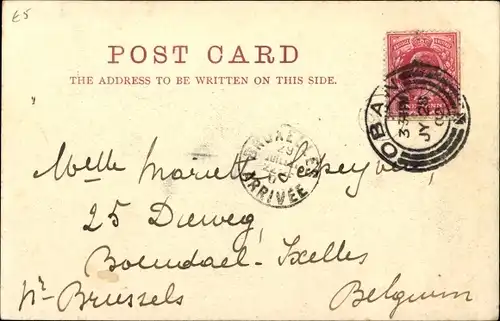 £5
POST CARD
THE ADDRESS TO BE WRITTEN ON THIS SIDE.
OBAN
BRUXELLES
29
ARRIVÉE
Melle Mariette
25 Dieweg,
Boendael-Ixelles
pr Brussels
Belgium